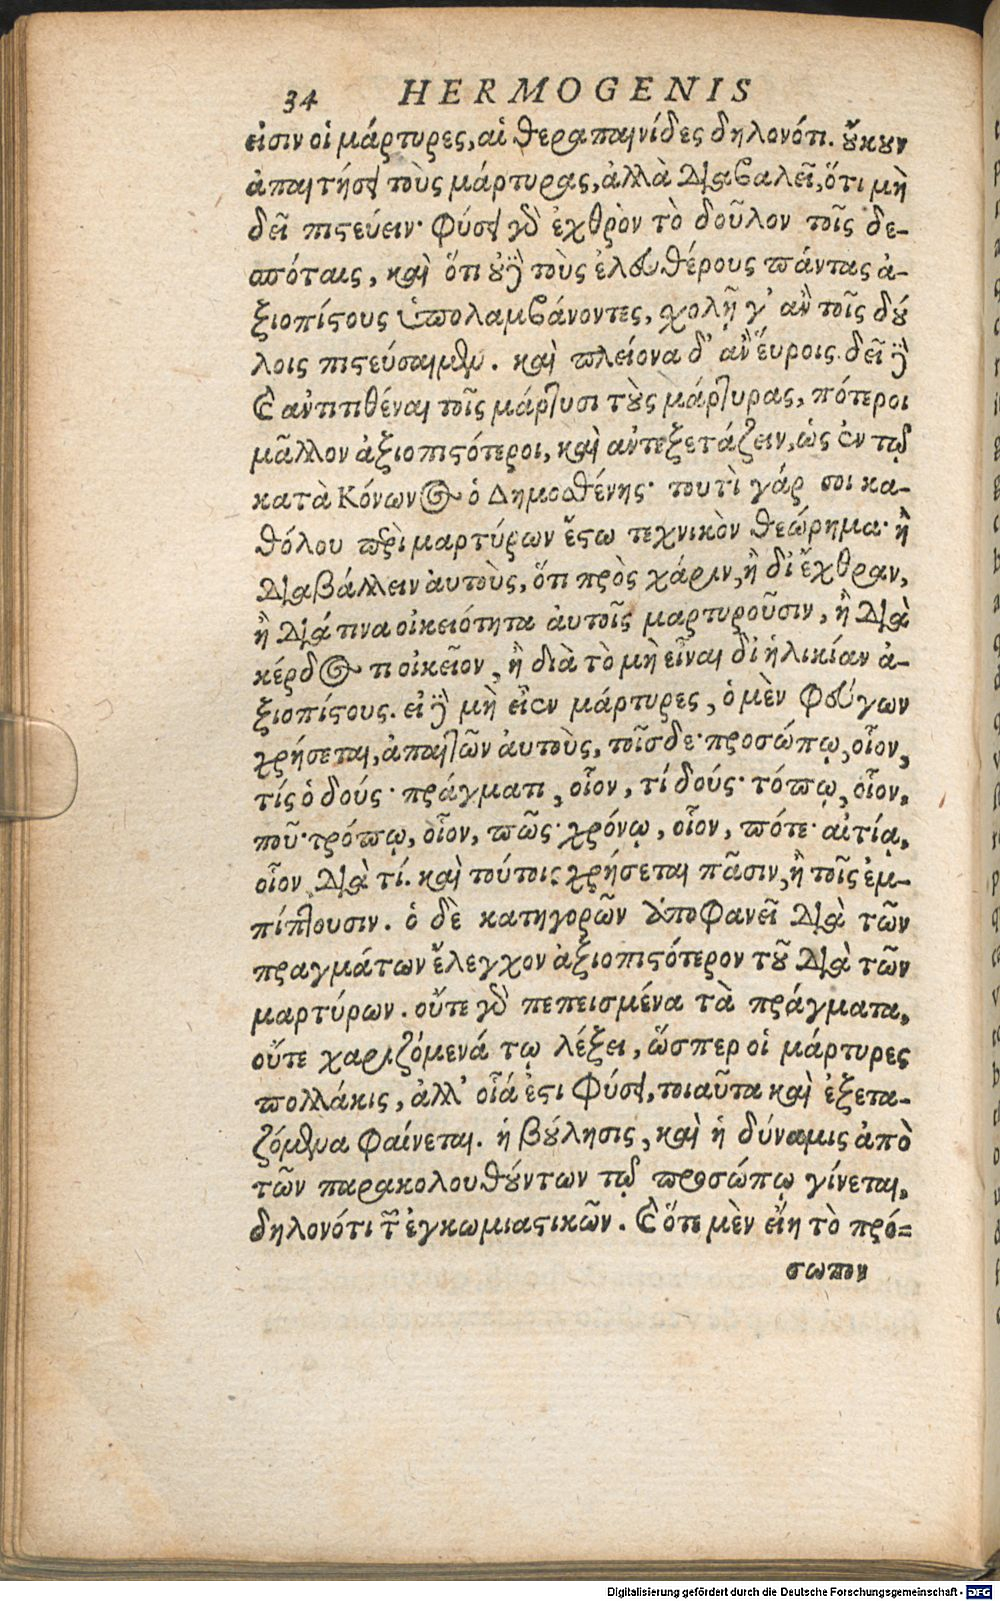 34 HERMOGENIS
εἰσιν οἱ μάρτυρες, αἱ θεραπαινίδες δηλονότι. οὔκουν
ἀπαιτήσει τοὺς μάρτυρας, ἀλλὰ διαβαλεῖ, ὅτι μὴ
δεῖ πιστεύειν· φύσει γὰρ ἐχθρὸν τὸ δοῦλον τοῖς δε-
σπόταις, καὶ ὅτι οὐδὲ τοὺς ἐλευθέρους πάντας ἀ-
ξιοπίστους ὑπολαμβάνοντες, χολῇ γ' ἂν τοῖς δού
λοις πιστεύσαιμεν. καὶ πλείονα δ' ἂν εὕροις. δεῖ δὲ
καὶ ἀντιτιθέναι τοῖς μάρτυσι τοὺς μάρτυρας, πότεροι
μᾶλλον ἀξιοπιστότεροι, καὶ ἀντεξετάζειν, ὡς ἐν τῷ
κατὰ Κόνωνος ὁ Δημοσθένης· τουτὶ γάρ σοι κα-
θόλου περὶ μαρτύρων ἔστω τεχνικὸν θεώρημα· ἢ
διαβάλλειν αὐτοὺς, ὅτι πρὸς χάριν, ἢ δι' ἔχθραν,
ἢ διά τινα οἰκειότητα αὐτοῖς μαρτυροῦσιν, ἢ διὰ
κέρδος τι οἰκεῖον, ἢ διὰ τὸ μὴ εἶναι δι' ἡλικίαν ἀ-
ξιοπίστους. εἰ δὲ μὴ εἶεν μάρτυρες, ὁ μὲν φεύγων
χρήσεται, ἀπαιτῶν αὐτοὺς, τοῖσδε· προσώπῳ, οἷον,
τίς ὁ δούς· πράγματι, οἷον, τί δούς· τόπῳ, οἷον,
ποῦ· τρόπῳ, οἷον, πῶς· χρόνῳ, οἷον, πότε· αἰτίᾳ,
οἷον διὰ τί. καὶ τούτοις χρήσεται πᾶσιν, ἢ τοῖς ἐμ-
πίπτουσιν. ὁ δὲ κατηγορῶν ἀποφανεῖ διὰ τῶν
πραγμάτων ἔλεγχον ἀξιοπιστότερον τοῦ διὰ τῶν
μαρτύρων. οὔτε γὰρ πεπεισμένα τὰ πράγματα,
οὔτε χαριζόμενά τῳ λέξει, ὥσπερ οἱ μάρτυρες
πολλάκις, ἀλλ' οἷά ἐστι φύσει, τοιαῦτα καὶ ἐξετα-
ζόμενα φαίνεται. ἡ βούλησις, καὶ ἡ δύναμις ἀπὸ
τῶν παρακολουθούντων τῷ προσώπῳ γίνεται,
δηλονότι τῶν ἐγκωμιαστικῶν. καὶ ὅτε μὲν εἴη τὸ πρό-
σωπον
Digitalisierung gefördert durch die Deutsche Forschungsgemeinschaft - DFG